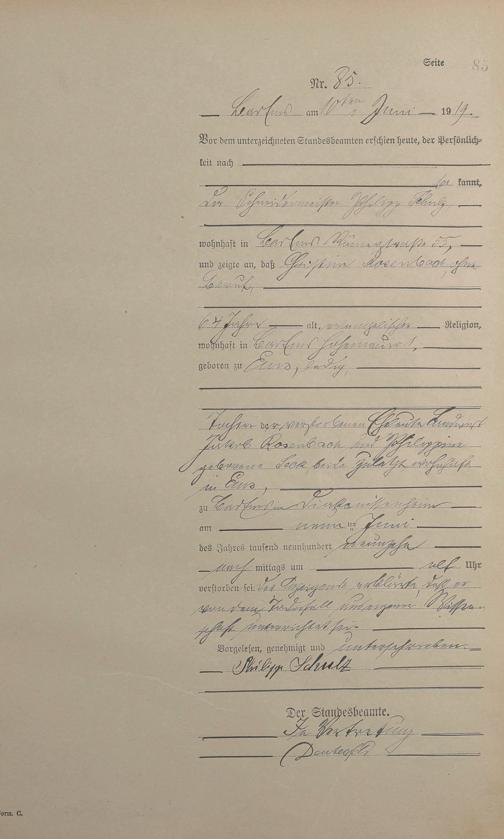 Seite 85
Nr. 85.
Bad Ems am 10ten Juni 1919.
Vor dem unterzeichneten Standesbeamten erschien heute, der Persönlich-
keit nach
be kannt,
der Schneidermeister Philipp Schult,
wohnhaft in Bad Ems Römerstraße 55,
und zeigte an, daß Christine Rosenbach, ohne
Beruf,
64 Jahre alt, evangelischer Religion,
wohnhaft in Bad Ems
geboren zu Ems, ledig,
Tochter der verstorbenen Eheleute
Jakob Rosenbach und Philippine
geborene beide zuletzt wohnhaft
in Ems,
zu Bad Ems im Diakonissenheim
am neunten Juni
des Jahres tausend neunhundert neunzehn
nach mittags um elf Uhr
verstorben sei. Der Anzeigende erklärte, daß er
von dem Todesfall aus eigener Wissen-
schaft unterrichtet sei.
Vorgelesen, genehmigt und unterschrieben.
Philipp Schult
Der Standesbeamte.
In Vertretung
Form. C.